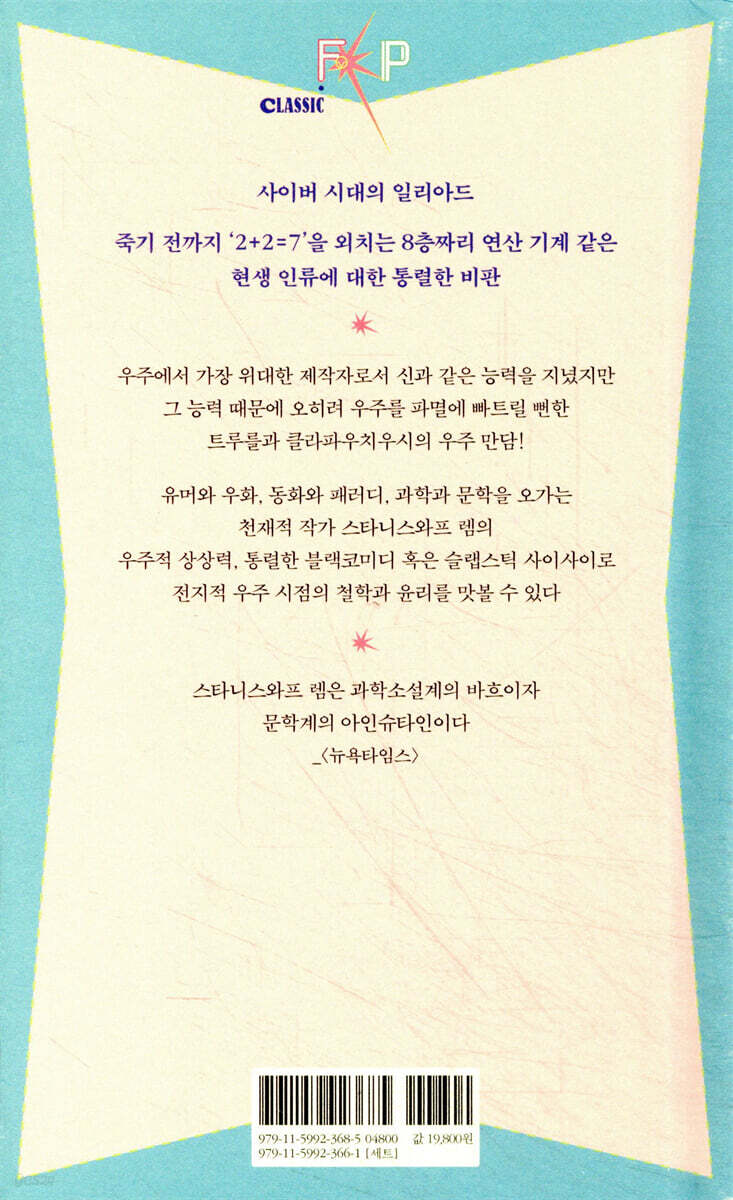 FoP
CLASSIC
사이버 시대의 일리아드
죽기 전까지 ‘2+2=7’을 외치는 8층짜리 연산 기계 같은
현생 인류에 대한 통렬한 비판
우주에서 가장 위대한 제작자로서 신과 같은 능력을 지녔지만
그 능력 때문에 오히려 우주를 파멸에 빠트릴 뻔한
트루를과 클라파우치우시의 우주 만담!
유머와 우화, 동화와 패러디, 과학과 문학을 오가는
천재적 작가 스타니스와프 렘의
우주적 상상력, 통렬한 블랙코미디 혹은 슬랩스틱 사이사이로
전지적 우주 시점의 철학과 윤리를 맛볼 수 있다
스타니스와프 렘은 과학소설계의 바흐이자
문학계의 아인슈타인이다
_〈뉴욕타임스〉
979-11-5992-368-5 04800 값 19,800원
979-11-5992-366-1 [세트]
yes24